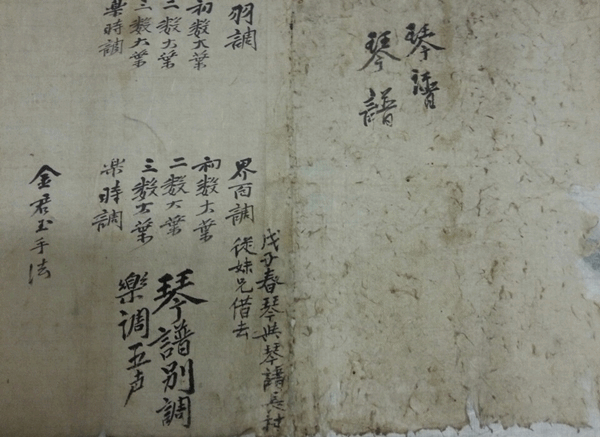 琴譜
琴譜
羽調
初数大葉
二数大葉
三数大葉
樂時調
界面調
初数大葉
二数大葉
三数大葉
樂時調
戊子春琴與琴譜
從妹兄借去
琴譜別調
樂調五声
金君玉手法